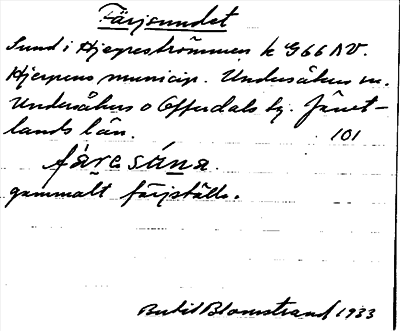 Färjsundet
Sund i Hjerpeströmmen k G66AV.
Hjerpens municip. Undersåkers sn.
Undersåkers o Offerdals tg. Jämt-
lands län. 101
färesúna
gammalt färjställe.
Bertil Blomstrand 1933